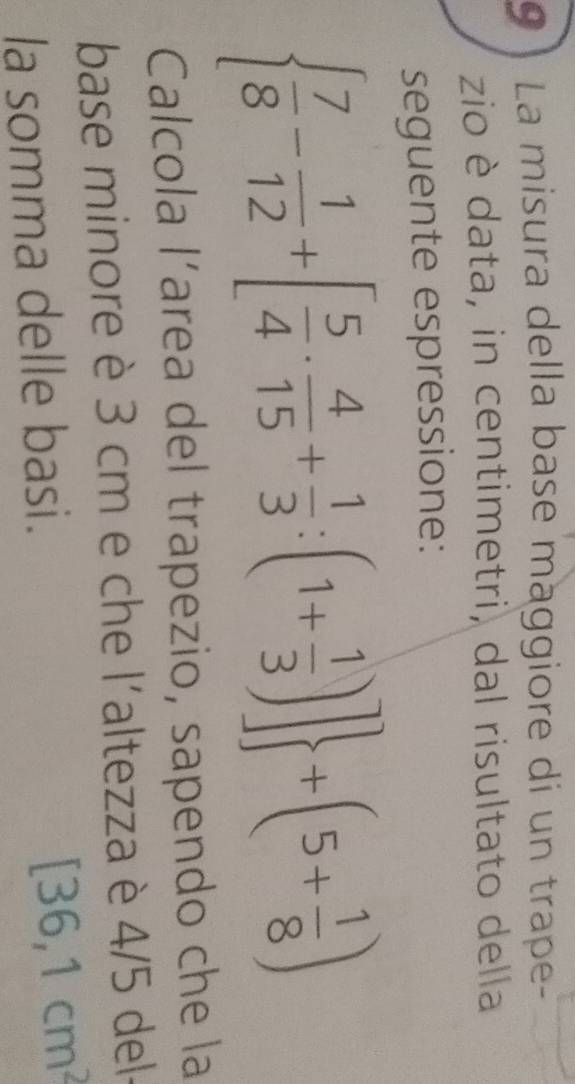 9 La misura della base maggiore di un trape-
zio è data, in centimetri, dal risultato della
seguente espressione:
{7/8 - 1/12 + [5/4 · 4/15 + 1/3 : (1 + 1/3)]} + (5 + 1/8)
Calcola l'area del trapezio, sapendo che la
base minore è 3 cm e che l'altezza è 4/5 del-
la somma delle basi.
[36,1 cm²